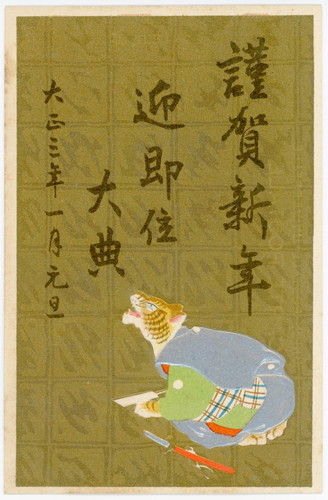 謹賀新年
迎即位
大典
大正三年一月元旦